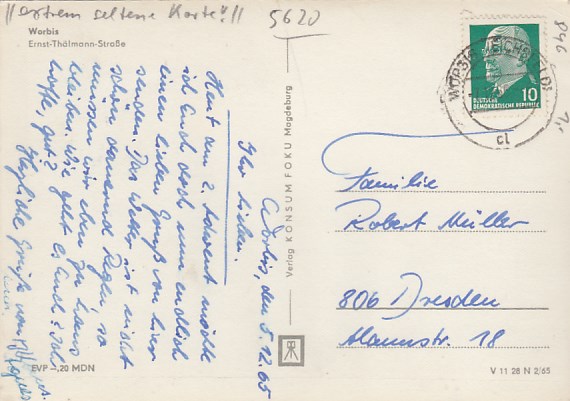 "extrem seltene Karte!"
5620
846
Worbis
Ernst-Thälmann-Straße
Worbis, den 5.12.65
Ihr Lieben.
Heut am 2. Advent möchte
ich Euch doch nun endlich
einen lieben Gruß von hier
senden. Das Wetter ist nicht
schön, dauernd Regen, so
müssen wir eben zu Haus
bleiben. Wie geht es Euch? Ich
hoffe, gut?
Herzliche Grüße von
EVP -,20 MDN
Verlag KONSUM FOKU Magdeburg
WORBIS (EICHSFELD)
cl
10
DEUTSCHE
DEMOKRATISCHE REPUBLIK
Familie
Robert Müller
806 Dresden
18
V 11 28 N 2/65